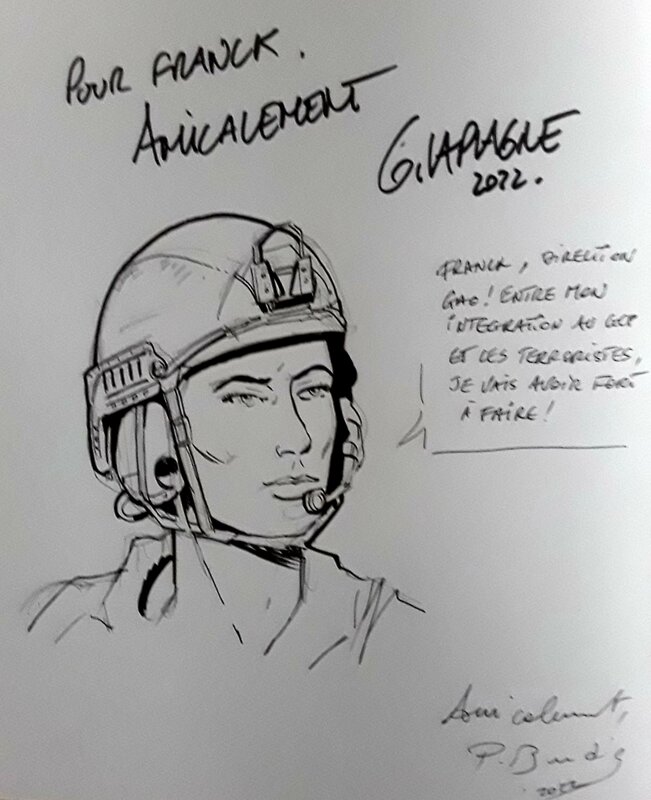 POUR FRANCK.
AMICALEMENT
G. LAPLAGNE
2022.
FRANCK, DIRECTION
GAO! ENTRE MON
INTEGRATION AU GCP
ET LES TERRORISTES,
JE VAIS AVOIR FORT
À FAIRE!
Amicalement,
P.
2022